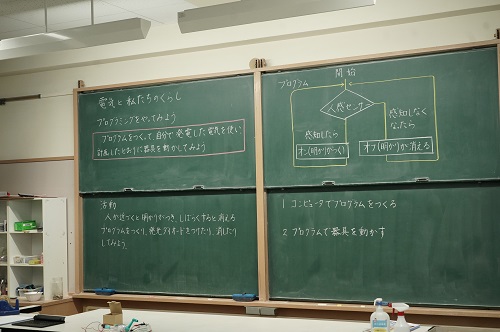 電気と私たちのくらし
プログラミングをやってみよう
プログラムをつくって、自分で発電した電気を使い
計画したとおりに器具を動かしてみよう
活動
人が近づくと明かりがつき、しばらくすると消える
プログラムをつくり、発光ダイオードをつけたり、消したり
してみよう。
プログラム
開始
人感センサ
感知したら
オン(明かりがつく)
感知しなく
なったら
オフ(明かりが消える)
1 コンピュータでプログラムをつくる
2 プログラムで器具を動かす